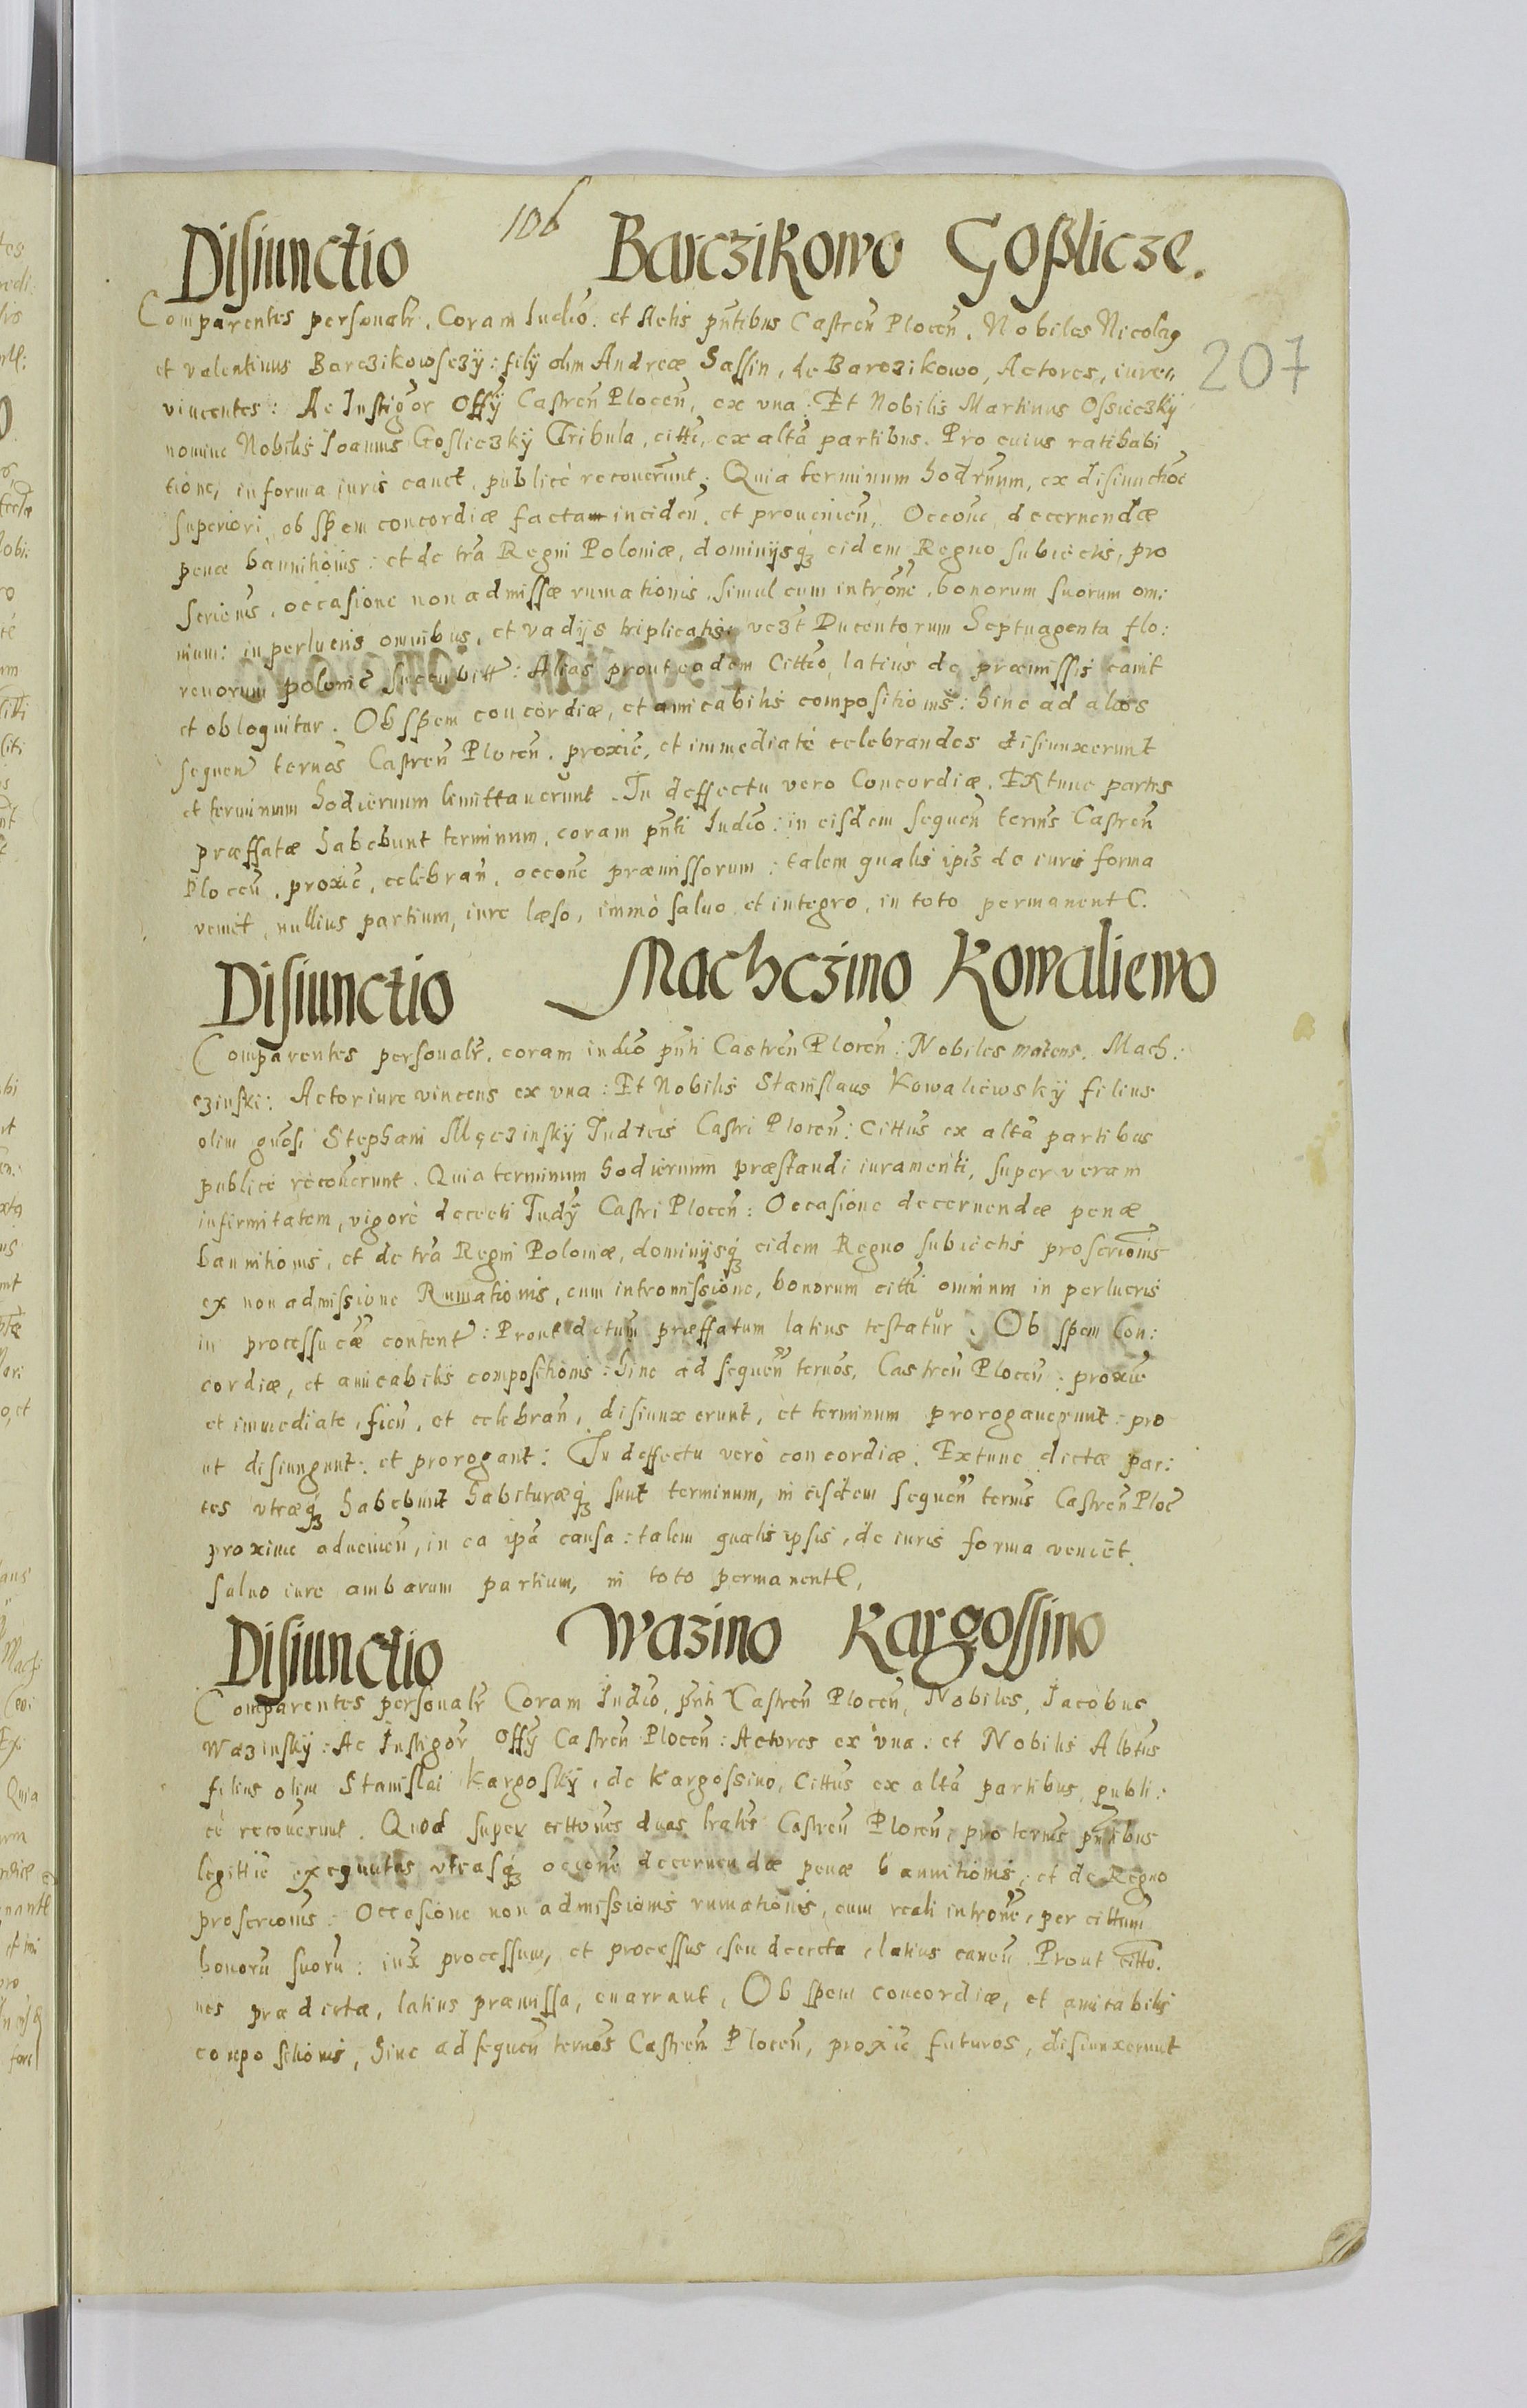 106
Disiunctio Barczikowo Goßlicze.
207
Comparentes personalr. Coram Iudicō. et Actis pn̄tibus Castren̄ Plocen̄. Nobiles Nicolaꝯ
et valentinus Barczikowsczÿ: filÿ olim Andreæ Sassin, de Barczikowo, Actores, iure
vincentes: Ac Instigor Offÿ Castren̄ Plocen̄, ex vna: Et Nobilis Martinus Ossieczkÿ
nomine Nobilis Joannis Gosliczkÿ Tribula, citti, ex altā partibus. Pro cuius ratihabi
tione, in forma iuris cauet, publicè recouerunt. Quia terminum hodrnum, ex disiunctioē
superiori, ob spem concordiæ facta inciden̄. et prouenien̄, Occone decernendæ
penæ bannitionis: et de tr̄a Regni Poloniæ, dominijsqꝫ eidem Regno subiectis, pro
scrionis, occasione non admissæ rumationis, simul cum intron̄e, bonorum suorum om:
nium: in perlucris omnibus, et vadijs triplicatis, vczt Ducentorum Septuagenta flo:
renorum polonic̄ succubitt: Alias prout eadem Cittio, latius de præmissis canit
et obloquitur. Ob spem concordiæ, et amicabilis compositionis: hinc ad alios
sequen̄ ternos Castren̄ Plocen̄. proxiē, et immediatè celebrandos disiunxerunt
et terminum hodiernum limittauerunt. In deffectu vero Concordiæ. Extunc partes
præffatæ habebunt terminum, coram pn̄ti Iudiō: in eisdem sequen̄ ternis Castren̄
Plocen̄, proxiē, celebran̄, occone præmissorum: talem qualis ipis de iuris forma
veniet, nullius partium, iure læso, immò saluo et integro, in toto permanent C.
Disiunctio Machczino Kowaliewo
Comparentes personalr. coram iudiō pn̄ti Castren̄ Plocen̄: Nobiles Matens. Mach:
czinski: Actor iure vincens ex vna: Et Nobilis Stanislaus Kowaliewskÿ filius
olim gnosi Stephani Męczinskÿ Iudicis Castri Plocen̄: Cittus ex altā partibus
publicè recouerunt. Quia terminum hodiernum præstandi iuramenti, super veram
infirmitatem, vigorè decreti Iudÿ Castri Plocen̄: Occasione decernendæ penæ
bannitionis, et de tr̄a Regni Poloniæ, dominijsqꝫ eidem Regno subiectis proscrionis
ex non admissione Rumationis, cum intromissione, bonorum citti omnium in perlucris
in processu eæ content: Prout dctum præffatum latius testatur. Ob spem Con:
cordiæ, et amicabilis compositionis: hinc ad sequen̄ ternos, Castren̄ Plocen̄: proxiē
et immediate, fien̄, et celebran̄, disiunxerunt, et terminum prorogauerunt: pro
ut disiungunt: et prorogant: In deffectu verò concordiæ: Extunc dictæ par:
tes vtræqꝫ habebunt habituræqꝫ sunt terminum, in eisdem sequen̄ ternis Castren̄ Ploc̄
proxime aduenien̄, in ea ipā causa: talem qualis ipsis, de iuris forma veniet.
saluo iure ambarum partium, in toto permanentC,
Disiunctio Wazino Kargossino
Comparentes personalr Coram Iudiō, pn̄ti Castren̄ Plocen̄, Nobiles, Jacobus
Wazinskÿ: Ac Instigor Offÿ Castren̄ Plocen̄: Actores ex vna: et Nobilis Albtus
filius olim Stanislai Kargoskÿ, de Kargossino, Cittus ex altā partibus publi:
cè recouerunt. Quod super cittones duas trales Castren̄ Plocen̄, pro ternis pn̄tibus
legittiē exequutas vtrasqꝫ occone decernendæ penæ bannitionis, et de Regno
proscrionis: Occosione non admissionis rumationis, cum reali intron̄e, per cittum
bonorū suorū: iux̄ processum, et processus seu decreta, latius canen̄. Prout citto.
nes prædictæ, latius præmissa, enarrant, Ob spem concordiæ, et amicabilis
compositionis, hinc ad sequen̄ ternos Castren̄ Plocen̄, proxiē futuros, disiunxerunt